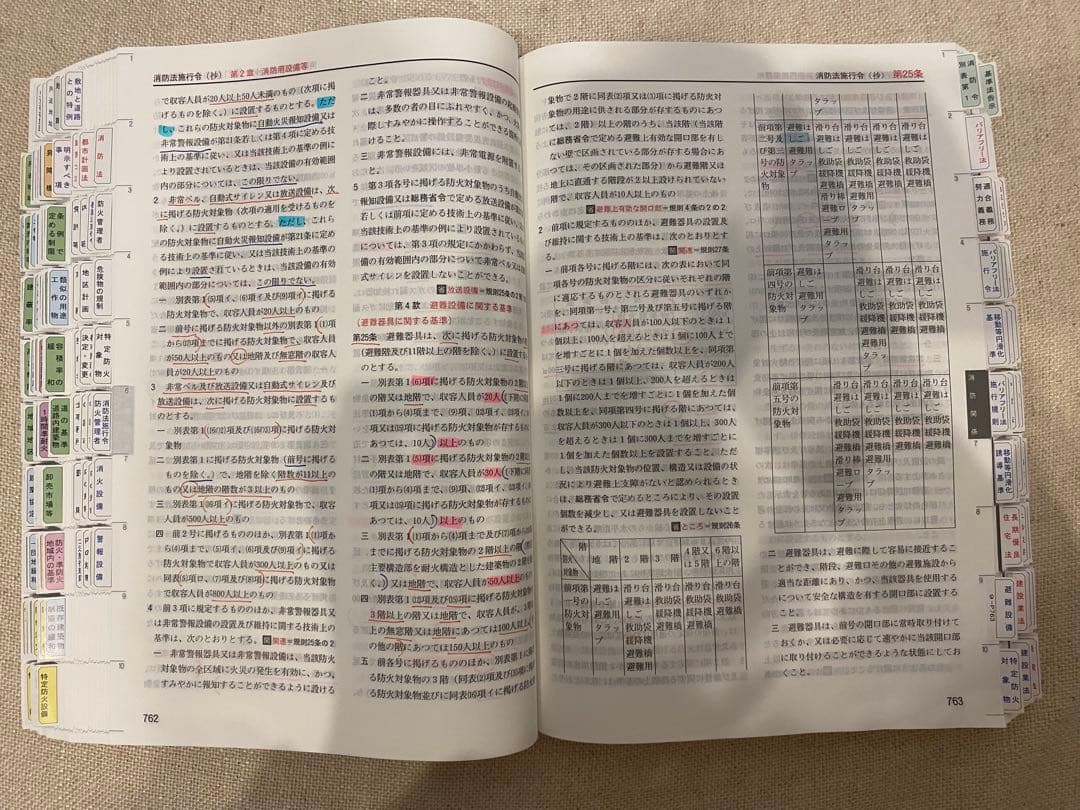 消防法施行令(抄) 第2章 消防用設備等
で収容人員が20人以上50人未満のもの(次項に掲げ
るものを除く。)に設置するものとする。ただ
し、これらの防火対象物に自動火災報知設備又は
非常警報設備が第21条若しくは第4項に定める技
術上の基準に従い、又は当該技術上の基準の例に
より設置されているときは、当該設備の有効範囲
内の部分については、この限りでない。
2 非常ベル、自動式サイレン又は放送設備は、次
に掲げる防火対象物(次項の適用を受けるものを
除く。)に設置するものとする。ただし、これら
の防火対象物に自動火災報知設備が第21条に定め
る技術上の基準に従い、又は当該技術上の基準の
例により設置されているときは、当該設備の有効
範囲内の部分については、この限りでない。
一 別表第1(5)項イ、(6)項イ及び(9)項イに掲げる
防火対象物で、収容人員が20人以上のもの
二 前号に掲げる防火対象物以外の別表第1(1)項
から(17)項までに掲げる防火対象物で、収容人員
が50人以上のもの又は地階及び無窓階の収容人
員が20人以上のもの
3 非常ベル及び放送設備又は自動式サイレン及び
放送設備は、次に掲げる防火対象物に設置するも
のとする。
一 別表第1(16の2)項及び(16の3)項に掲げる防火対
象物
二 別表第1に掲げる防火対象物(前号に掲げる
ものを除く。)で、地階を除く階数が11以上の
もの又は地階の階数が3以上のもの
三 別表第1(16)項イに掲げる防火対象物で、収容
人員が500人以上のもの
四 前2号に掲げるもののほか、別表第1(1)項か
ら(4)項まで、(5)項イ、(6)項及び(9)項イに掲げる
防火対象物で収容人員が300人以上のもの又は
同表(5)項ロ、(7)項及び(8)項に掲げる防火対象物
で収容人員が800人以上のもの
4 前3項に規定するもののほか、非常警報器具又
は非常警報設備の設置及び維持に関する技術上の
基準は、次のとおりとする。 関連=規則25条の2
一 非常警報器具又は非常警報設備は、当該防火
対象物の全区域に火災の発生を有効に、かつ、
すみやかに報知することができるように設ける
762
こと。
二 非常警報器具又は非常警報設備の起動装置
は、多数の者の目にふれやすく、かつ、
際しすみやかに操作することができる箇所
こと。
三 非常警報設備には、非常電源を附置する
こと。
5 第3項各号に掲げる防火対象物のうち自動
報知設備又は総務省令で定める放送設備が
若しくは前項に定める技術上の基準に従い、
は当該技術上の基準の例により設置されている
については、第3項の規定にかかわらず、当該
の有効範囲内の部分について非常ベル又は
式サイレンを設置しないことができる。
省 放送設備=規則25条の2第1項
第4款 避難設備に関する基準
(避難器具に関する基準)
第25条 避難器具は、次に掲げる防火対象物の階
(避難階及び11階以上の階を除く。)に設置する
ものとする。
一 別表第1(6)項に掲げる防火対象物の2階以上
の階又は地階で、収容人員が20人(下階に同表
(1)項から(4)項まで、(9)項、
あつては、10人)以上のもの
二 別表第1(5)項に掲げる防火対象物の2階以上
の階又は地階で、収容人員が30人(下階に同表
(1)項から(4)項まで、(9)項、
あつては、10人)以上のもの
三 別表第1(1)項から(4)項まで及び(7)項から
までに掲げる防火対象物の2階以上の階(
主要構造部を耐火構造とした建築物の2階を
く。)又は地階で、収容人員が50人以上のもの
四 別表第1(12)項及び(15)項に掲げる防火対象物の
3階以上の階又は地階で、収容人員が、3階以上
の無窓階又は地階にあつては100人以上、そ
の他の階にあつては150人以上のもの
五 前各号に掲げるもののほか、別表第1に掲げ
る防火対象物の3階(同表(2)項及び(3)項に掲げる
防火対象物並びに同表(16)項イに掲げる防火対
消防法施行令(抄) 第25条
象物で2階に同表(2)項又は(3)項に掲げる防火対
象物の用途に供される部分が存するものにあつ
ては、2階)以上の階のうち、当該階(当該階
に総務省令で定める避難上有効な開口部を有し
ない壁で区画されている部分が存する場合にあ
つては、その区画された部分)から避難階又は
地上に直通する階段が2以上設けられていない
階で、収容人員が10人以上のもの
省 避難上有効な開口部=規則4条の2の2
2 前項に規定するもののほか、避難器具の設置及
び維持に関する技術上の基準は、次のとおりとす
る。 関連=規則27条
一 前項各号に掲げる階には、次の表において同
項各号の防火対象物の区分に従いそれぞれの階
に適応するものとされる避難器具のいずれか
を、同項第一号、第二号及び第五号に掲げる階
にあつては、収容人員が100人以下のときは1
個以上、100人を超えるときは1個に100人まで
を増すごとに1個を加えた個数以上を、同項第
三号に掲げる階にあつては、収容人員が200人
以下のときは1個以上、200人を超えるときは
1個に200人までを増すごとに1個を加えた個
数以上を、同項第四号に掲げる階にあつては、
収容人員が300人以下のときは1個以上、300人
を超えるときは1個に300人までを増すごとに
1個を加えた個数以上設置すること。ただ
し、当該防火対象物の位置、構造又は設備の状
況により避難上支障がないと認められるときに
は、総務省令で定めるところにより、その設置
個数を減少し、又は避難器具を設置しないこと
ができる。 省 ところ=規則26条
階
防火対象物
地階
2階
3階
4階又は5階
6階以上の階
前項第一号の防火対象物
避難はしご
避難用タラップ
滑り台
避難はしご
救助袋
緩降機
避難橋
避難用
滑り台
救助袋
緩降機
避難橋
滑り台
救助袋
緩降機
避難橋
滑り台
救助袋
避難橋
タラップ
前項第二号及び第三号の防火対象物
避難はしご
避難用タラップ
滑り台
避難はしご
救助袋
緩降機
避難橋
滑り棒
避難ロープ
避難用タラップ
滑り台
避難はしご
救助袋
緩降機
避難橋
避難用タラップ
滑り台
避難はしご
救助袋
緩降機
避難橋
滑り台
避難はしご
救助袋
緩降機
避難橋
前項第四号の防火対象物
避難はしご
避難用タラップ
滑り台
避難はしご
救助袋
緩降機
避難橋
避難用タラップ
滑り台
避難はしご
救助袋
緩降機
避難橋
滑り台
避難はしご
救助袋
緩降機
避難橋
前項第五号の防火対象物
滑り台
避難はしご
救助袋
緩降機
避難橋
滑り棒
避難ロープ
避難用タラップ
滑り台
避難はしご
救助袋
緩降機
避難橋
避難用タラップ
滑り台
避難はしご
救助袋
緩降機
避難橋
滑り台
避難はしご
救助袋
緩降機
避難橋
二 避難器具は、避難に際して容易に接近するこ
とができ、階段、避難口その他の避難施設から
適当な距離にあり、かつ、当該器具を使用する
について安全な構造を有する開口部に設置する
こと。
三 避難器具は、前号の開口部に常時取り付けて
おくか、又は必要に応じて速やかに当該開口部
に取り付けることができるような状態にしてお
くこと。
763
敷地と道路との特例
消防法
都市計画法
明示すべき事項
条例で定める制限
防火管理者
類似の用途
工作物
地区計画
危険物の規制
容積率の緩和
特定防火対象物
決定・変更
道の基準
道路内建築物
1時間準耐火
消防法施行令
防火管理者
卸売市場等
消火設備
防火・準防火地域内の基準
警報設備
既存建築物制限の緩和
特定防火設備
消防令別表第1
基準法告示
バリアフリー法
労働力義務
バリアフリー法施行令
移動等円滑化基準
消防関係
バリアフリー法施行規則
移動等円滑化誘導基準
長期優良住宅法
建設業法
避難設備
建設業法
特定防火対象物